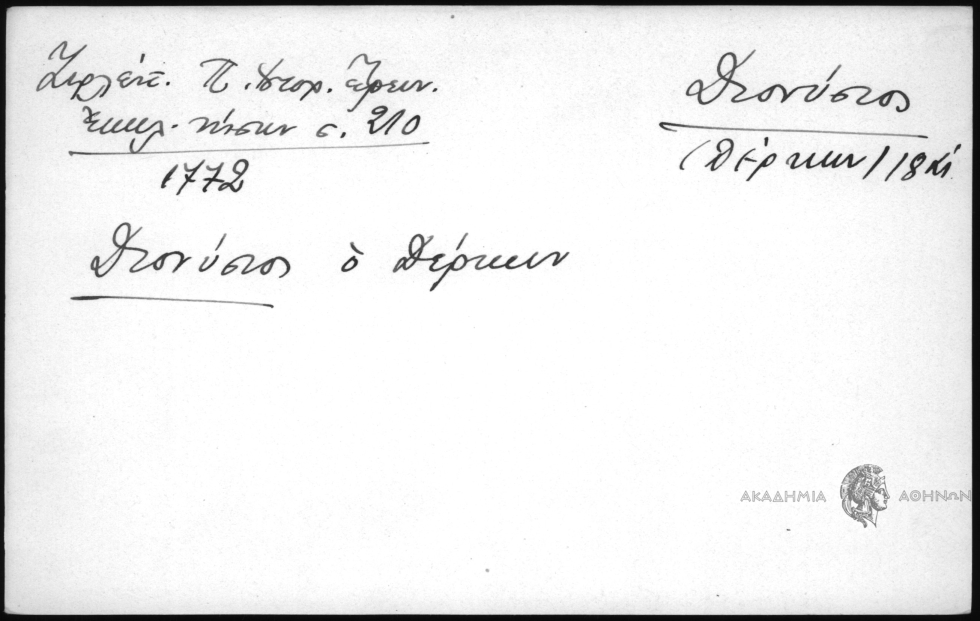 Ζερλέντ. Π. Ιστορ. έρευν.
Εκκλ. νήσων σ. 210
1772
Διονύσιος
(Δέρκων) 18
Διονύσιος ὁ Δέρκων
ΑΚΑΔΗΜΙΑ ΑΘΗΝΩΝ